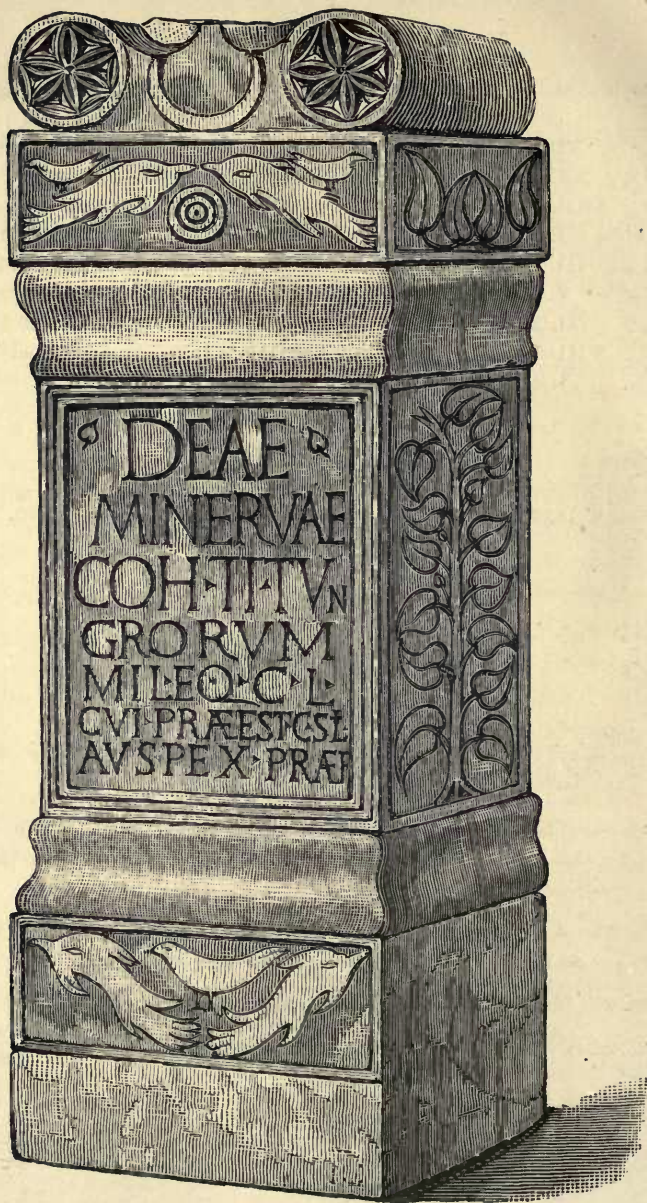 DEAE
MINERVAE
COH·TI·TVN
GRORVM
MIL·EQ·C·L·
CVI·PRÆEST·C·SL·
AVSPEX·PRÆF